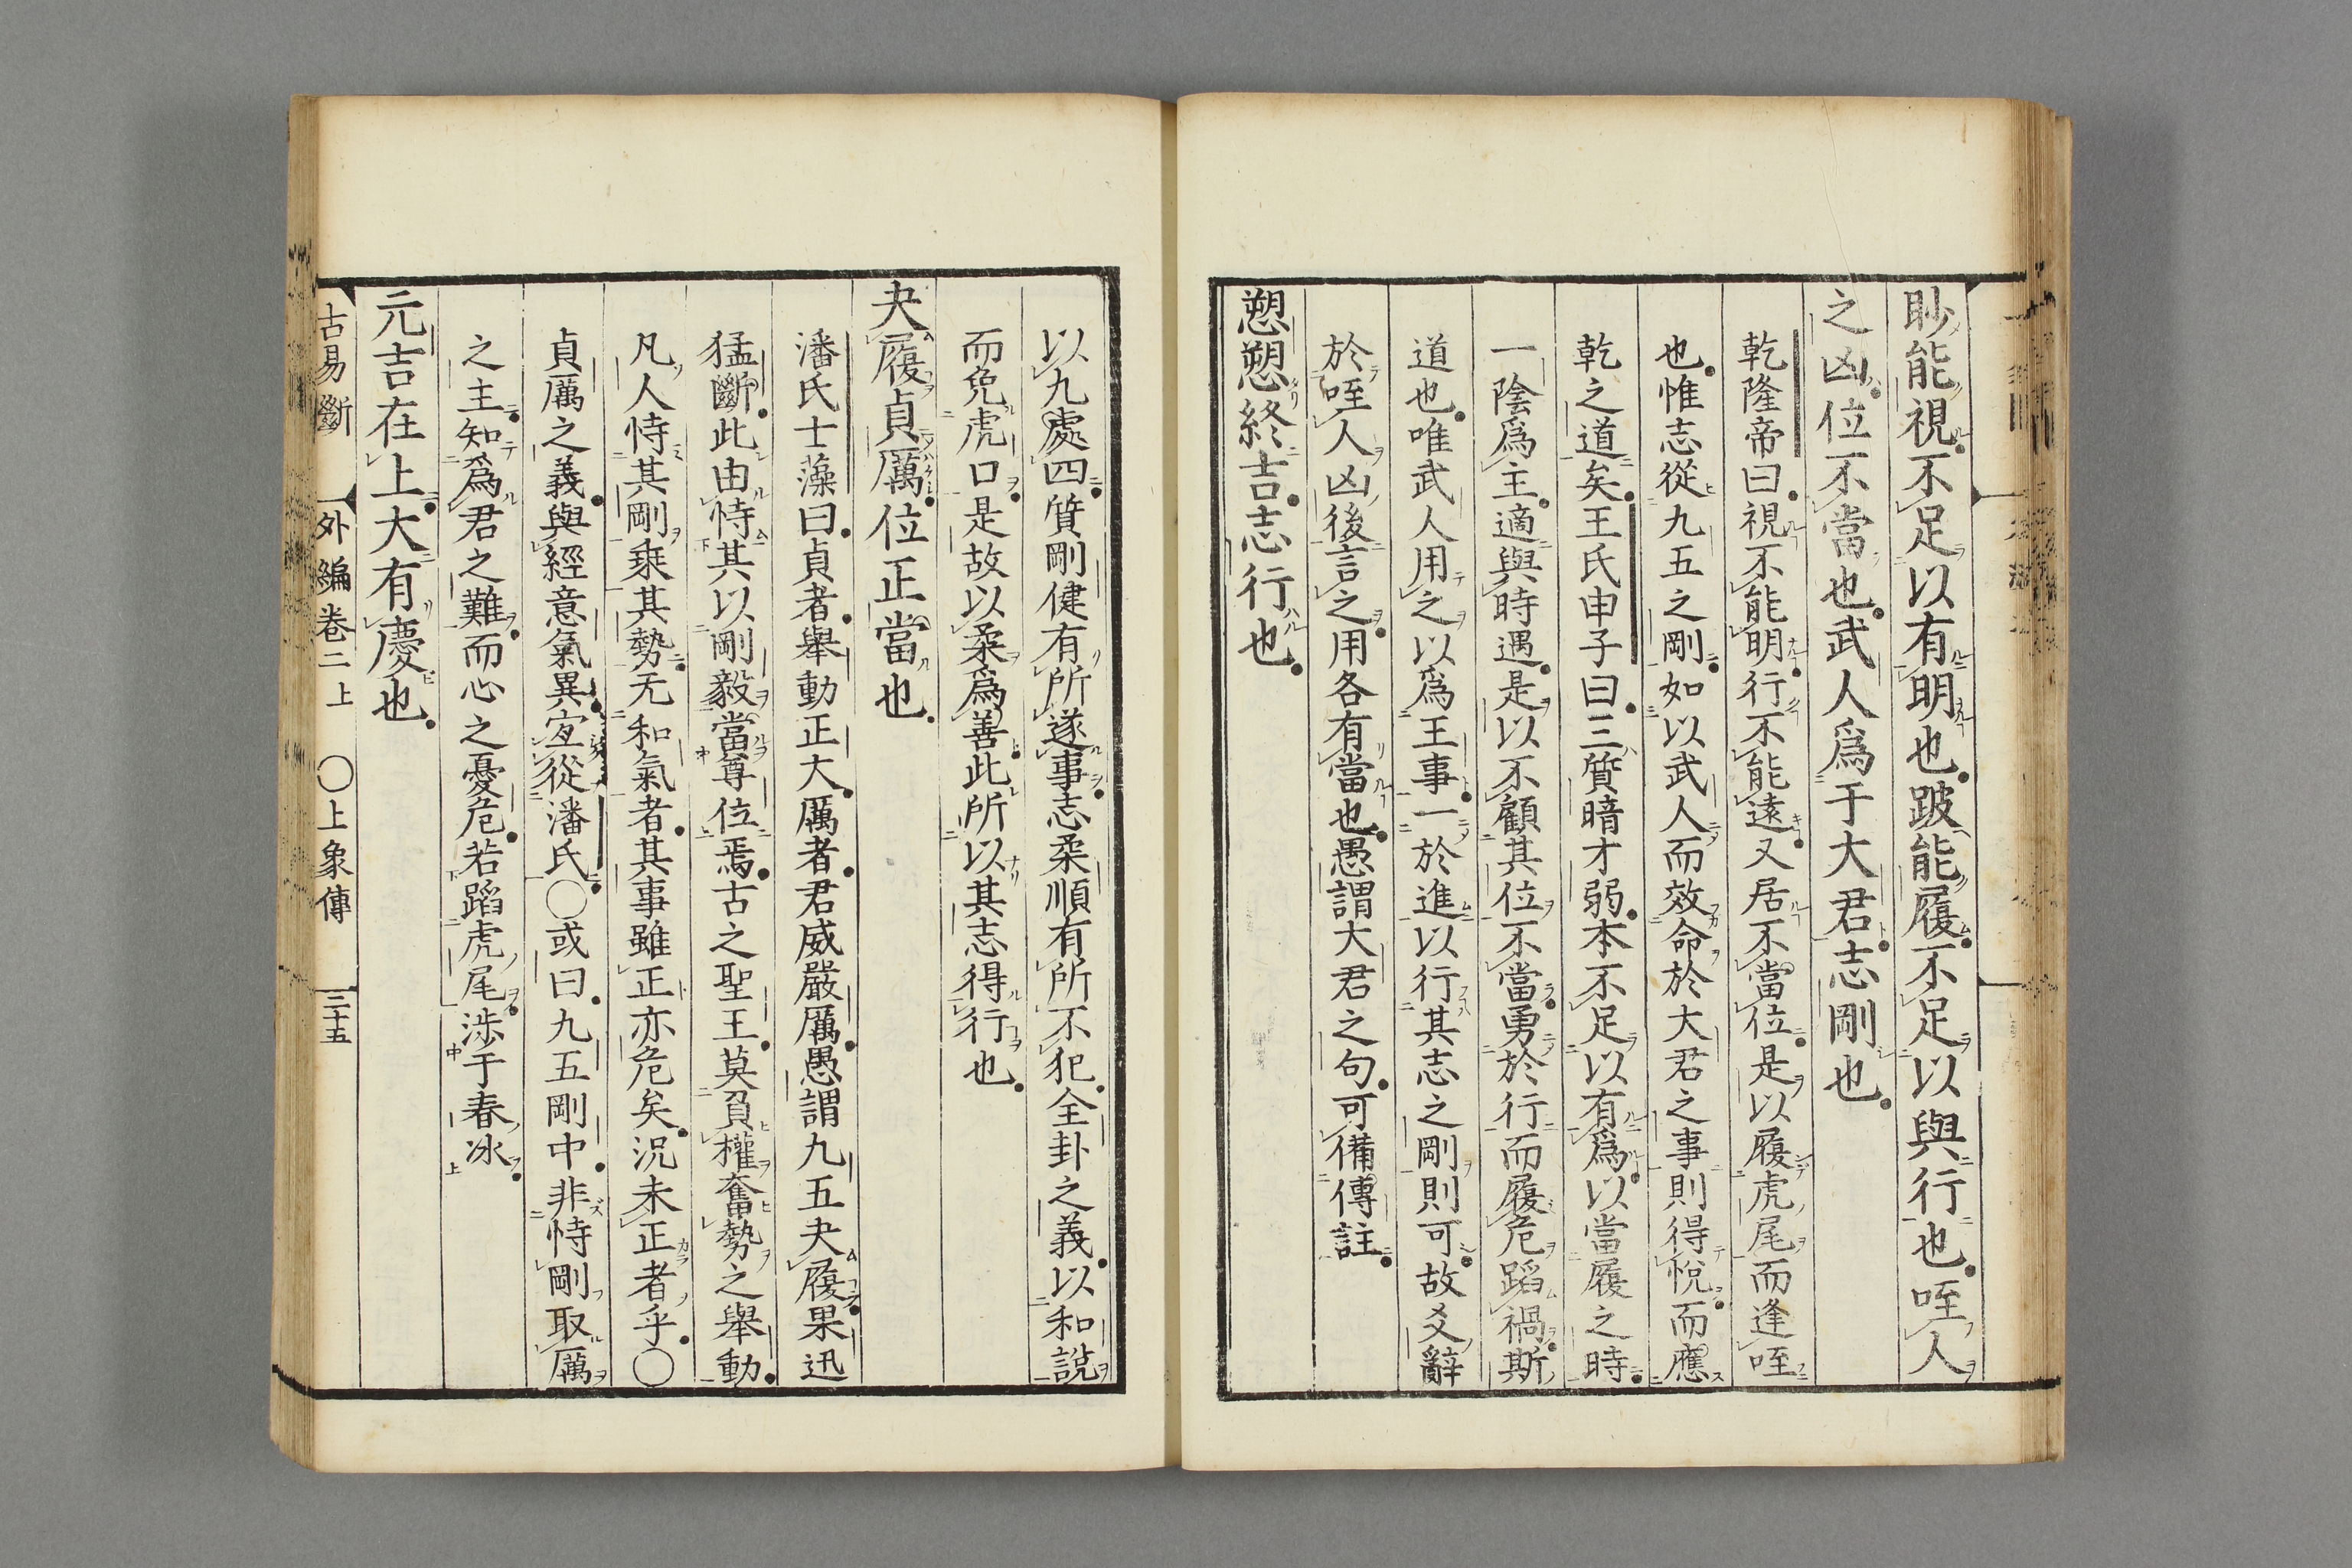 眇能視不足以有明也跛能履不足以與行也咥人
之凶位不當也武人爲于大君志剛也
乾隆帝曰視不能明行不能遠又居不當位是以履虎尾而逢咥
也惟志從九五之剛如以武人而效命於大君之事則得悅而應
乾之道矣王氏申子曰三質暗才弱本不足以有爲以當履之時
一陰爲主適與時遇是以不顧其位不當勇於行而履危蹈禍斯
道也唯武人用之以爲王事一於進以行其志之剛則可故爻辭
於咥人凶後言之用各有當也愚謂大君之句可備傳註
愬愬終吉志行也
以九處四質剛健有所遂事志柔順有所不犯全卦之義以和說
而免虎口是故以柔爲善此所以其志得行也
夬履貞厲位正當也
潘氏士藻曰貞者舉動正大厲者君威嚴厲愚謂九五夬履果迅
猛斷此由恃其以剛毅當尊位焉古之聖王莫負權奮勢之舉動
凡人恃其剛乘其勢无和氣者其事雖正亦危矣況未正者乎〇
貞厲之義與經意氣異宜從潘氏〇或曰九五剛中非恃剛取厲
之主知爲君之難而心之憂危若蹈虎尾涉于春冰
元吉在上大有慶也
古易斷 外編卷二上 〇上象傳 三十五